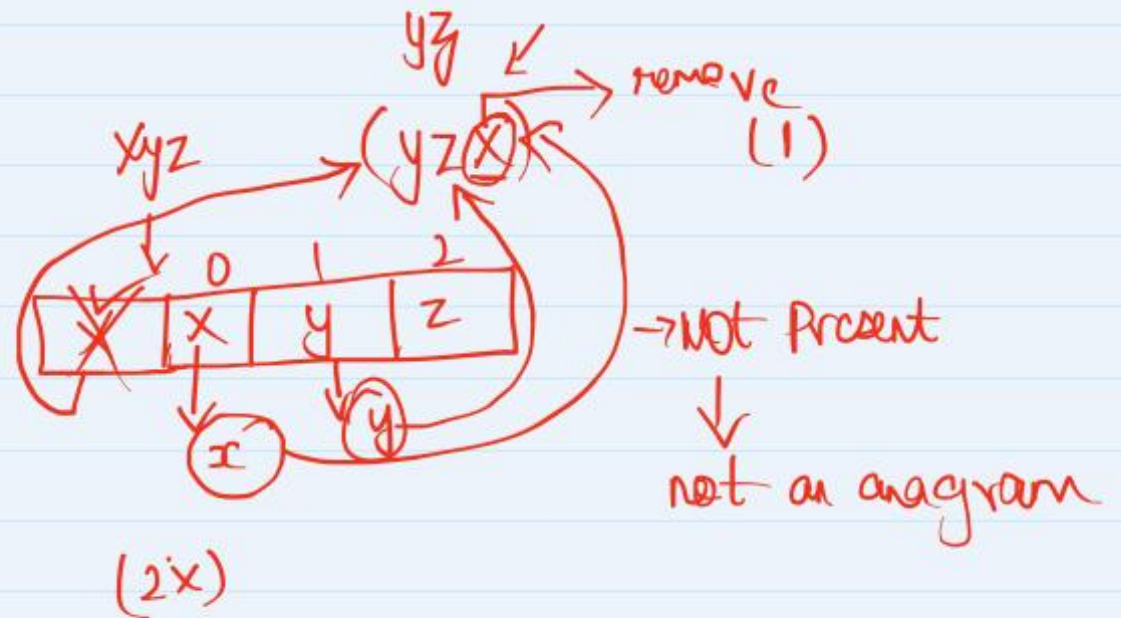 yz
remove
(1)
xyz
(yzx)
0 1 2
X x y z
→ Not Present
x y
not an anagram
(2x)